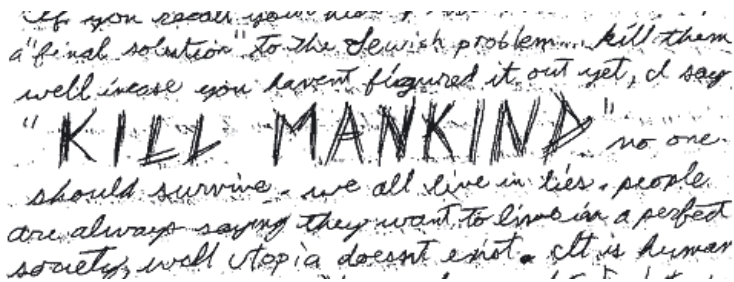 If you recall your
a "final solution" to the Jewish problem... kill them
well incase you havent figured it out yet, I say
"KILL MANKIND" no one
should survive. we all live in lies. people
are always saying they want to live in a perfect
society, well utopia doesnt exist. It is human